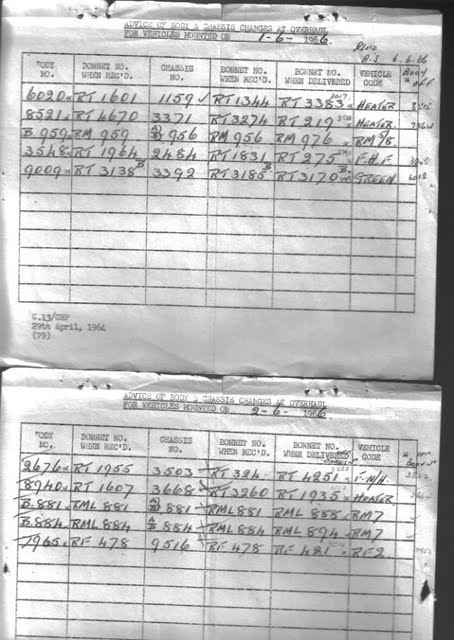 ADVICE OF BODY & CHASSIS CHANGES AT OVERHAUL
FOR VEHICLES MOUNTED ON 1-6- 1966
6.6.66
BODY NO. BONNET NO. WHEN REC'D. CHASSIS NO. BONNET NO. WHEN REC'D. BONNET NO. WHEN DELIVERED VEHICLE CODE Body
6020 RT 1601 1159 RT 1344 RT 3383 HEATER
8521 RT 4670 3371 RT 3274 RT 219 HEATER
B.959 RM 959 A 956 RM 956 RM 976 RM5/8
3548 RT 1964 2484 RT 1831 RT 275 F.H.F.
9009 RT 3138 B 3392 RT 3185 B RT 3170 B. GREEN
C.13/GHP
29th April, 1964
(79)
ADVICE OF BODY & CHASSIS CHANGES AT OVERHAUL
FOR VEHICLES MOUNTED ON 2-6- 1966
BODY NO. BONNET NO. WHEN REC'D. CHASSIS NO. BONNET NO. WHEN REC'D. BONNET NO. WHEN DELIVERED VEHICLE CODE
2676 RT 1955 3503 RT 324 RT 4251 F-N/H.
8940 RT 1607 3668 RT 3260 RT 1935 HEATER
B.881 RML 881 A 881 RML 881 RML 888 RM7
B.884 RML 884 A 884 RML 884 RML 894 RM7
7965 RF 478 9516 RF 478 RF 481 RF2